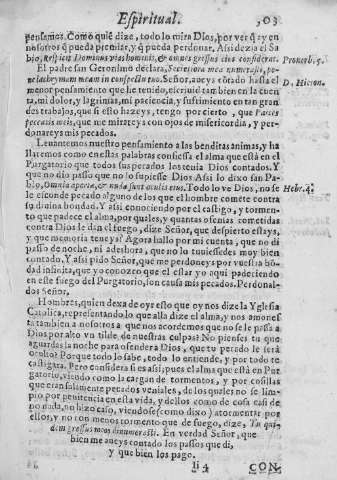 Espiritual. 303
pensamos. Como quiẽ dize, todo lo mira Dios, por ver q̃ ay en
nosotros q̃ pueda premiar, y q̃ pueda perdonar. Assi dezia el Sa
bio, Respicit Dominus vias hominis, & omnes gressus eius considerat.
Prouerb. 5.
El padre san Geronimo declara,
D. Hieron.
Señor, aueys cõtado hasta el
menor pensamiento que he tenido, escriuid tambien en la cuen
ta, mi dolor, y lagrimas, mi paciencia, y sufrimiento en tan gran
des trabajos, que si esto hazeys, tengo por cierto, que Parces
peccatis meis, que me mirareys con ojos de misericordia, y per-
donareys mis pecados.
Leuantemos nuestro pensamiento a las benditas animas, y ha
llaremos como en estas palabras confiessa el alma que està en el
Purgatorio que todos sus pecados los tenia Dios contados. Y
que no dio passo que no lo supiesse Dios Assi lo dixo san Pa-
blo, Omnia aperta, & nuda sunt oculis eius. Todo lo ve Dios, no se
Hebr. 4.
le esconde pecado alguno de los que el hombre comete contra
su diuina bondad. Y assi conociendo por el castigo, y tormen-
to que padece el alma, por quales, y quantas ofensas cometidas
contra Dios le dan el fuego, dize Señor, que despierto estays,
y que memoria teneys? Agora hallo por mi cuenta, que no di
passo de noche, ni a deshora, que no lo tuuiessedes muy bien
contado. Y assi pido Señor, que me perdoneys por vuestra bõ-
dad infinita, que yo conozco que el estar yo aqui padeciendo
en este fuego del Purgatorio, son causa mis pecados. Perdonal-
dos Señor.
Hombres, quien dexa de oyr esto que oy nos dize la Yglesia
Catolica, representando lo que alla dize el alma, y nos amones
ta tambien a nosotros a que nos acordemos que no se le passa a
Dios por alto vn tilde de nuestras culpas? No pienses tu que
aguardas la noche para ofender a Dios, que tu pecado le serà
oculto? Porque todo lo sabe, todo lo entiende, y por todo te
castigara. Pero considera si es assi, pues el alma que està en Pur
gatorio, viendo como la cargan de tormentos, y por cosillas
que eran solamente pecados veniales, de los quales no se lim-
pio por penitencia en esta vida, y dellos como de cosa casi de
no nada, no hizo caso, viendose (como dixo) atormentar por
ellos, y no con menos tormento que de fuego, dize, Tu qui-
dem gressus meos dinumerasti. En verdad Señor, que
bien me aueys contado los passos que di,
y que bien los pago.
Ii 4 CON-